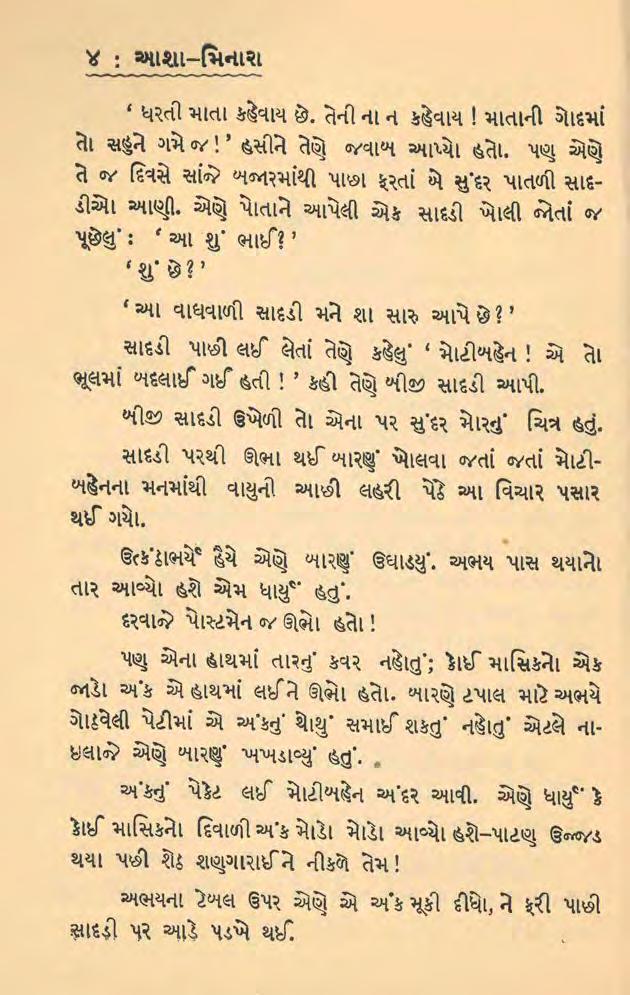 ૪ : આશા–મિનારા
‘ ધરતી માતા કહેવાય છે. તેની ના ન કહેવાય ! માતાની ગોદમાં
તો સહુને ગમે જ ! ’ હસીને તેણે જવાબ આપ્યો હતો. પણ એણે
તે જ દિવસે સાંજે બજારમાંથી પાછા ફરતાં બે સુંદર પાતળી સાદ-
ડીઓ આણી. એણે પોતાને આપેલી એક સાદડી ખોલી જોતાં જ
પૂછેલું : ‘ આ શું ભાઈ? ’
‘ શું છે? ’
‘ આ વાઘવાળી સાદડી મને શા સારુ આપે છે? ’
સાદડી પાછી લઈ લેતાં તેણે કહેલું ‘ મોટીબહેન ! એ તો
ભૂલમાં બદલાઈ ગઈ હતી ! ’ કહી તેણે બીજી સાદડી આપી.
બીજી સાદડી ઉખેળી તો એના પર સુંદર મોરનું ચિત્ર હતું.
સાદડી પરથી ઊભા થઈ બારણું ખોલવા જતાં જતાં મોટી-
બહેનના મનમાંથી વાયુની આછી લહરી પેઠે આ વિચાર પસાર
થઈ ગયો.
ઉત્કંઠાભર્યે હૈયે એણે બારણું ઉઘાડયું. અભય પાસ થયાનો
તાર આવ્યો હશે એમ ધાર્યું હતું.
દરવાજે પોસ્ટમેન જ ઊભો હતો !
પણ એના હાથમાં તારનું કવર નહોતું; કોઈ માસિકનો એક
જાડો અંક એ હાથમાં લઈને ઊભો હતો. બારણે ટપાલ માટે અભયે
ગોઠવેલી પેટીમાં એ અંકનું થોથું સમાઈ શકતું નહોતું એટલે ના-
ઇલાજે એણે બારણું ખખડાવ્યું હતું.
અંકનું પેકેટ લઈ મોટીબહેન અંદર આવી. એણે ધાર્યું કે
કોઈ માસિકનો દિવાળી અંક મોડો મોડો આવ્યો હશે–પાટણ ઉજ્જડ
થયા પછી શેઠ શણગારાઈને નીકળે તેમ !
અભયના ટેબલ ઉપર એણે એ અંક મૂકી દીધો, ને ફરી પાછી
સાદડી પર આડે પડખે થઈ.